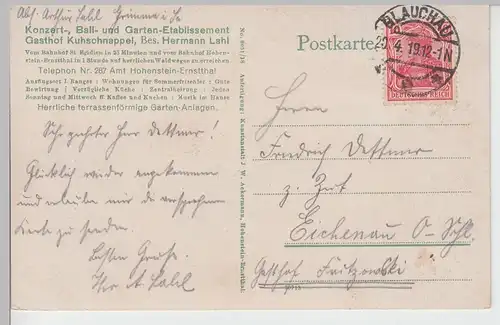 Abs. Arthur Lahl Grimma i. Sa.
Konzert-, Ball- und Garten-Etablissement
Gasthof Kuhschnappel, Bes. Hermann Lahl
Vom Bahnhof St. Egidien in 25 Minuten und vom Bahnhof Hohen-
stein-Ernstthal in 1 Stunde auf herrlichen Waldwegen zu erreichen
Telephon Nr. 267 Amt Hohenstein-Ernstthal
Ausflugsort I. Ranges : Wohnungen für Sommerfrischler : Gute
Bewirtung / Vorzügliche Küche / Zentralheizung / Jeden
Sonntag und Mittwoch ff Kaffee und Kuchen / Musik im Hause
Herrliche terrassenförmige Garten-Anlagen.
Sehr geehrter Herr Dettmer!
Glücklich wieder angekommen
und erlaube mir die versprochene
Karte zu senden.
Besten Gruß
A. Lahl
Anfertigung: Kunstanstalt J. W. Ackermann, Hohenstein-Ernstthal.
Postkarte
GLAUCHAU
4.19.12-1N
DEUTSCHES REICH
Herrn
Friedrich Dettmer
z. Zeit
Eichenau O-Schl.
Gasthof Fritzowski